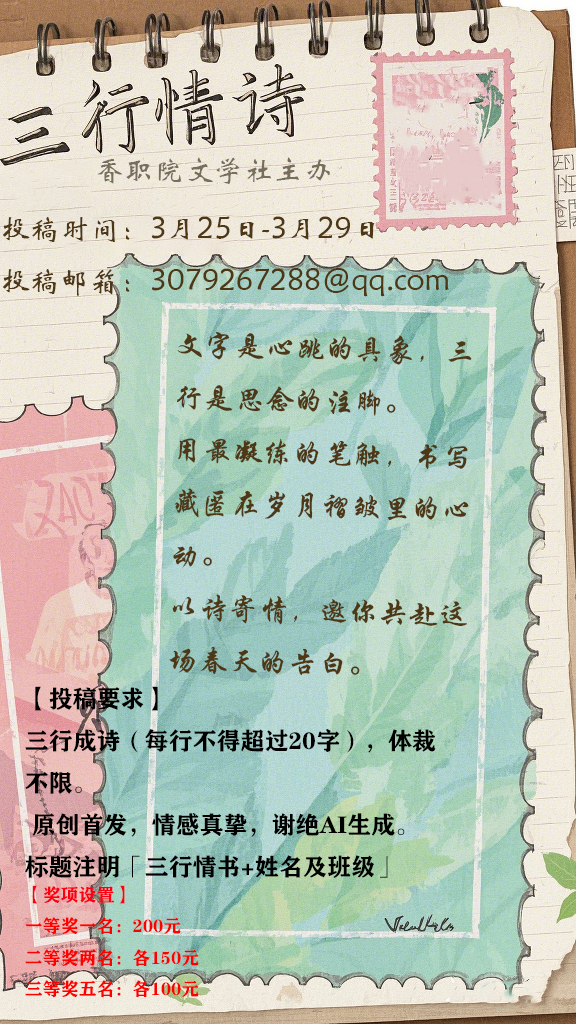 三行情诗
香职院文学社主办
投稿时间：3月25日-3月29日
投稿邮箱：3079267288@qq.com
文字是心跳的具象，三
行是思念的注脚。
用最凝练的笔触，书写
藏匿在岁月褶皱里的心
动。
以诗寄情，邀你共赴这
场春天的告白。
【投稿要求】
三行成诗（每行不得超过20字），体裁
不限。
原创首发，情感真挚，谢绝AI生成。
标题注明「三行情书+姓名及班级」
【奖项设置】
一等奖一名：200元
二等奖两名：各150元
三等奖五名：各100元